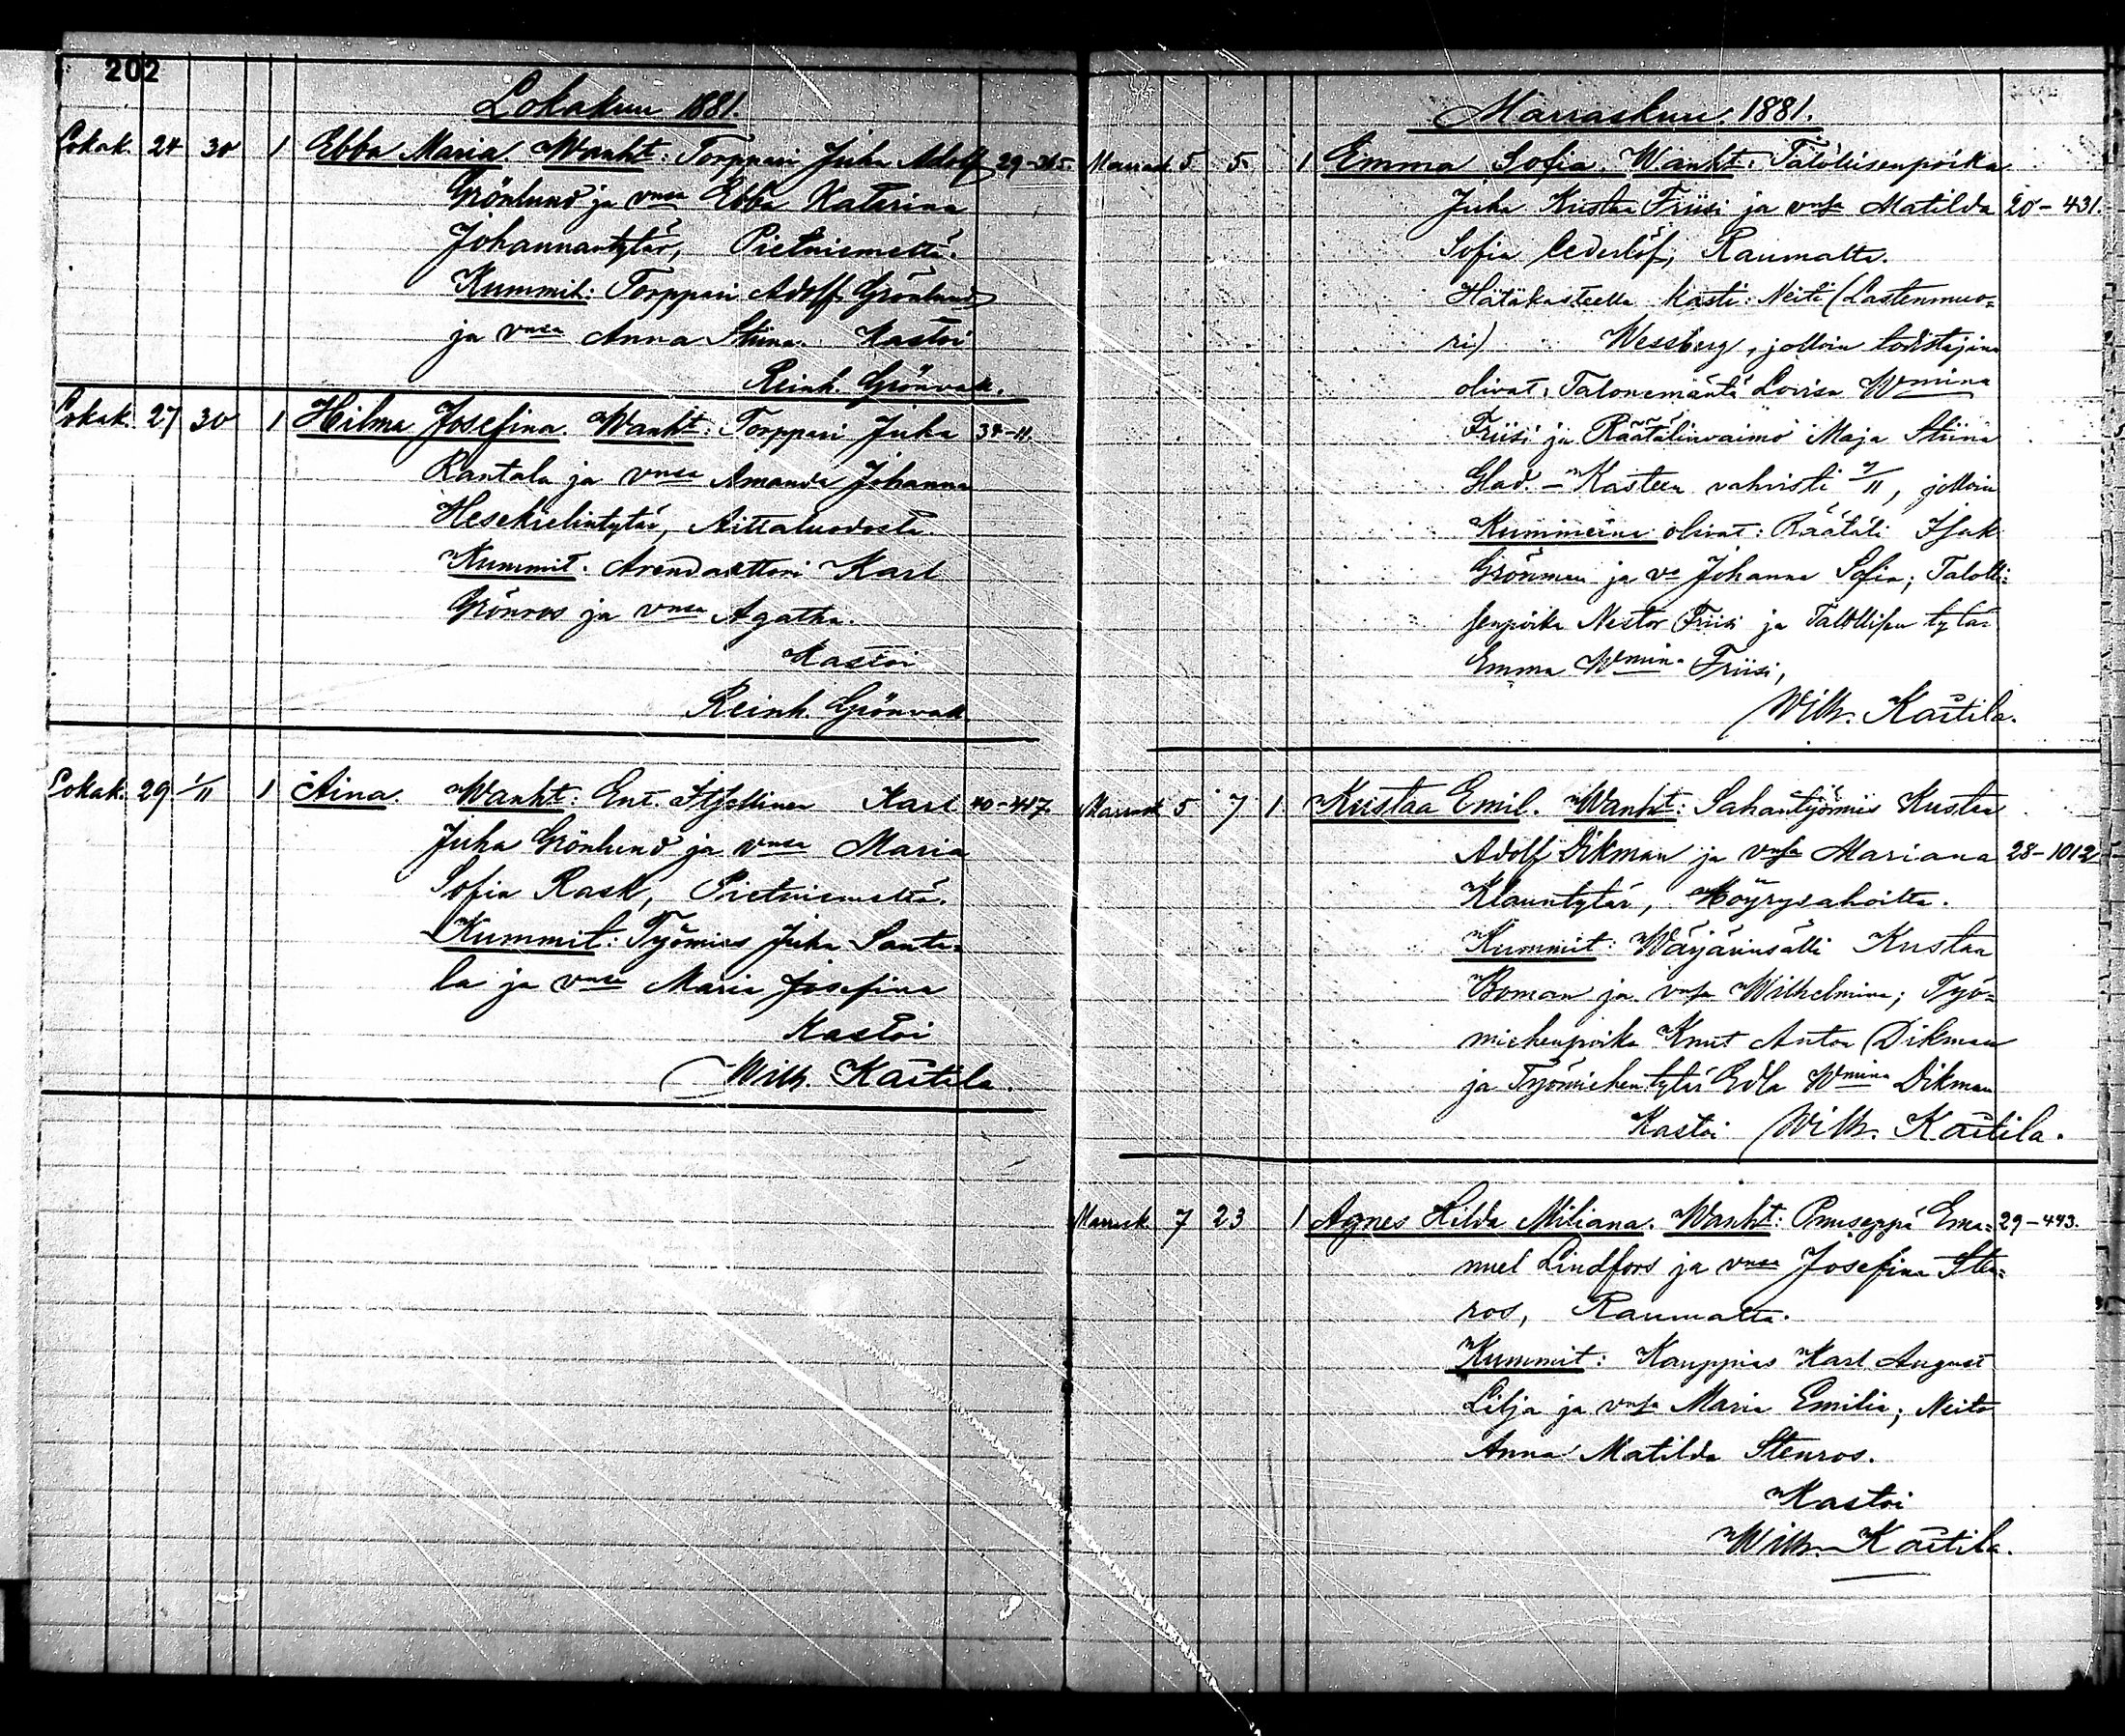 202
Lokakuu 1881.
Lokak. 24 30 1 Ebba Maria. Wanht: Torppari Juha Adolf 29-365.
Grönlund ja vnsa Ebba Katarina
Johannantytär, Pietniemeltä.
Kummit: Torppari Adolf Grönlund
ja vnsa Anna Stiina. Kastoi
Reinh. Grönvall.
Lokak. 27 30 1 Hilma Josefina. Wanht: Torppari Juha 34-11.
Rantala ja vnsa Amanda Johanna
Hesekielintytär, Aittaluodosta.
Kummit. Arendaattori Karl
Grönros ja vnsa Agatha.
Kastoi
Reinh. Grönvall
Lokak. 29. 1/11 1 Aina. Wanht: Ent. Itsellinen Karl 40-417.
Juha Grönlund ja vnsa Maria
Sofia Rask, Pietniemeltä.
Kummit: Työmies Juha Santa-
la ja vnsa Maria Josefina
Kastoi
Wilh. Kaitila.
Marraskuu. 1881.
Marrask 5 5 1 Emma Sofia. Wanht: Talollisenpoika
Juha Kustaa Friisi ja vnsa Matilda 20-431.
Sofia Cederlöf, Raumalta.
Hätäkasteella kasti: Neiti (Lastenmuo-
ri) Wessberg, jolloin todistajina
olivat: Talonemäntä Lovisa Wmina
Friisi ja Räätälinvaimo Maja Stiina
Glad. - Kasteen vahvisti 7/11, jolloin
Kummeina olivat: Räätäli Isak
Grönman ja vo Johanna Sofia; Talolli-
senpoika Nestor Friisi ja Talollisen tytär
Emma Wmin. Friisi,
Wilh. Kaitila.
Marrask 5 7 1. Kustaa Emil. Wanht: Sahantyömies Kustaa
Adolf Dikman ja vnsa Mariana 28-1012
Klauntytär, Höyrysahoilta.
Kummit: Wärjärinsälli Kustaa
Boman ja vnsa Wilhelmina; Työ-
miehenpoika Knut Anton Dikman
ja Työmiehentytär Edla Wmina Dikman
Kastoi Wilh. Kaitila.
Marrask 7 23 1 Agnes Hilda Miliana. Wanht: Puuseppä Ema- 29-443.
nuel Lindfors ja vnsa Josefina Sten-
ros, Raumalta.
Kummit: Kauppias Karl August
Lilja ja vnsa Maria Emilia; Neito
Anna Matilda Stenros.
Kastoi
Wilh. Kaitila.